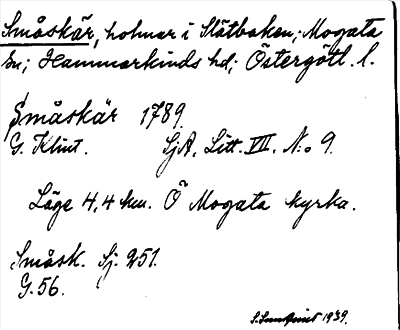 Småskär, holmar i Slätbaken, Mogata
sn; Hammarkinds hd; Östergötl. l.
Småskär 1789.
G. Klint. SjA, Litt. VII. N:o 9.
Läge 4,4 km. Ö Mogata kyrka.
Småsk. Sj. 251.
G. 56.
S. Sundquist 1939.